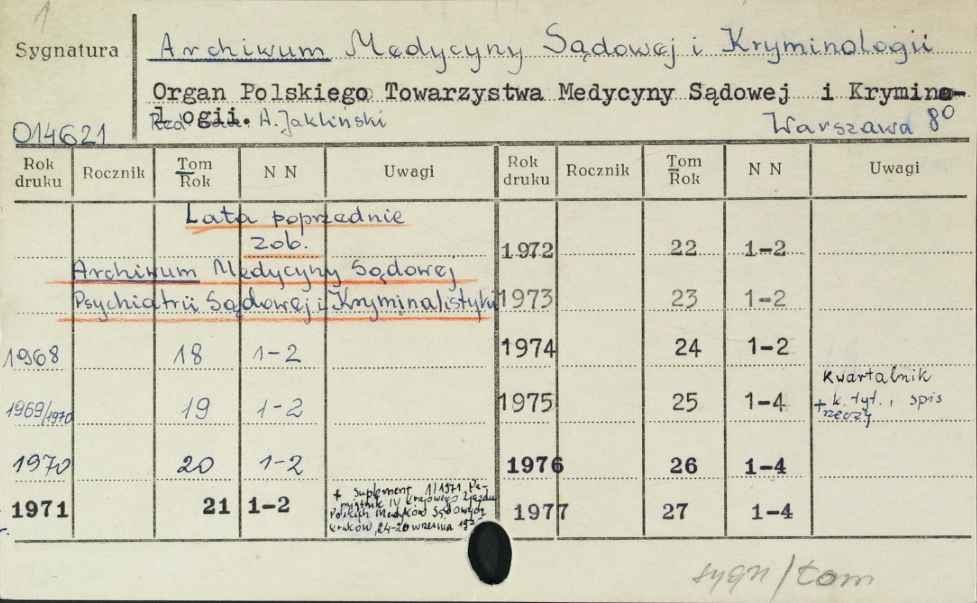 1
Sygnatura
Archiwum Medycyny Sądowej i Kryminologii
Organ Polskiego Towarzystwa Medycyny Sądowej i Krymino-
logii.
A. Jakliński
014621
Warszawa 8°
Rok druku Rocznik Tom Rok N N Uwagi Rok druku Rocznik Tom Rok N N Uwagi
Lata poprzednie
zob.
Archiwum Medycyny Sądowej
Psychiatrii Sądowej i Kryminalistyki
1968 18 1-2
1969/1970 19 1-2
1970 20 1-2
1971 21 1-2
+ suplement 1/1971, Pa-
miętnik IV Krajowego Zjazdu
Polskich Medyków Sądowych
Kraków, 24-26 września
1972 22 1-2
1973 23 1-2
1974 24 1-2
1975 25 1-4
Kwartalnik
+ k. tyt., spis
rzeczy
1976 26 1-4
1977 27 1-4
sygn/tom